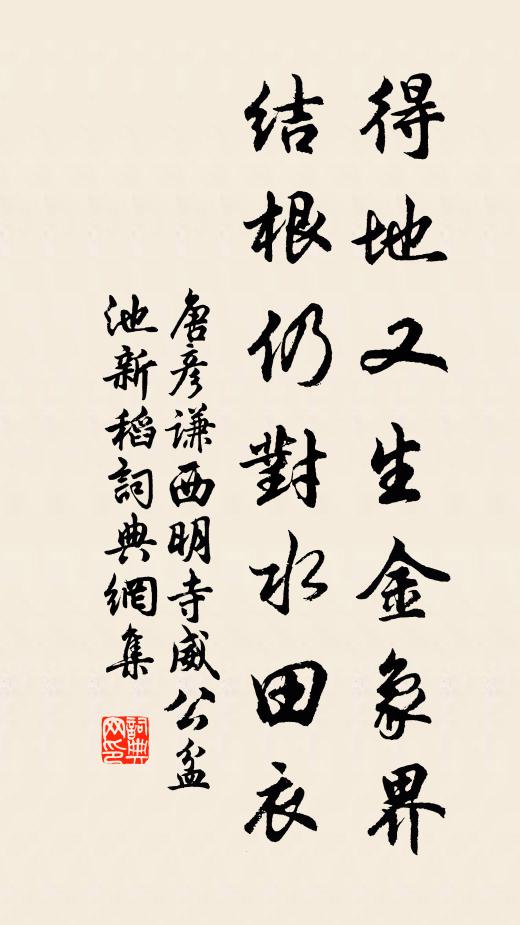 得地又生金象界
結根仍對水田衣
唐彥謙西明寺威公盆
池新稻詞典網集
詞典
网印